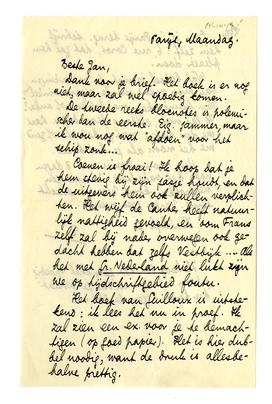 Parijs, Maandag.
Beste Jan,
Dank voor je brief. Het boek is er nog
niet, maar zal wel spoedig komen.
De tweede reeks blocnotes is polemi-
scher dan de eerste. Eig. jammer, maar
ik wou nog wat "afdoen" voor het
schip zonk...
Coenen is fraai! Ik hoop dat je
hem stevig bij zijn jasje houdt, en dat
de uitgevers hem ook zullen verplich-
ten. Het wijf de Canter heeft natuur-
lijk nattigheid gevoeld, en oom Frans
zelf zal bij nader overwegen ook ge-
dacht hebben dat zelfs Vestdijk.... Als
het met Gr. Nederland niet lukt zijn
we op tijdschriftgebied foutu.
Het boek van Guilloux is uitste-
kend: ik lees het nu in proef. Ik
zal zien een ex. voor je te bemach-
tigen (op goed papier). Het is hier dub-
bel noodig, want de druk is allesbe-
halve prettig.